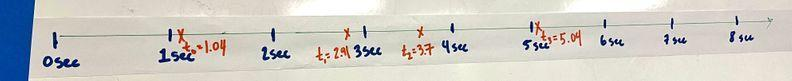 0sec 1sec t₀=1.04 2sec t₁=2.91 3sec t₂=3.7 4sec 5sec t₃=5.04 6sec 7sec 8sec